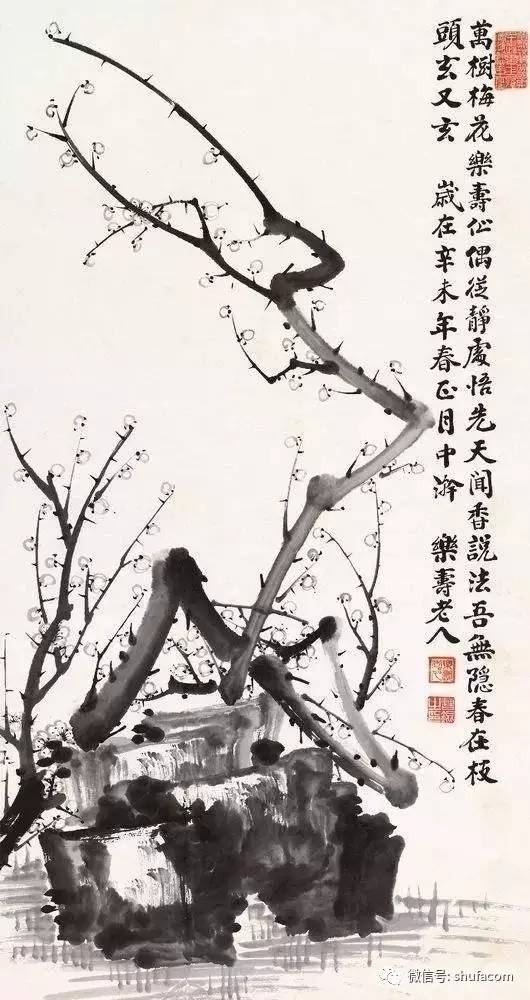 萬樹梅花樂壽仙偶從靜處悟先天闻香說法吾無隐春在枝
頭玄又玄　歲在辛未年春正月中浣　樂壽老人
微信号: shufacom